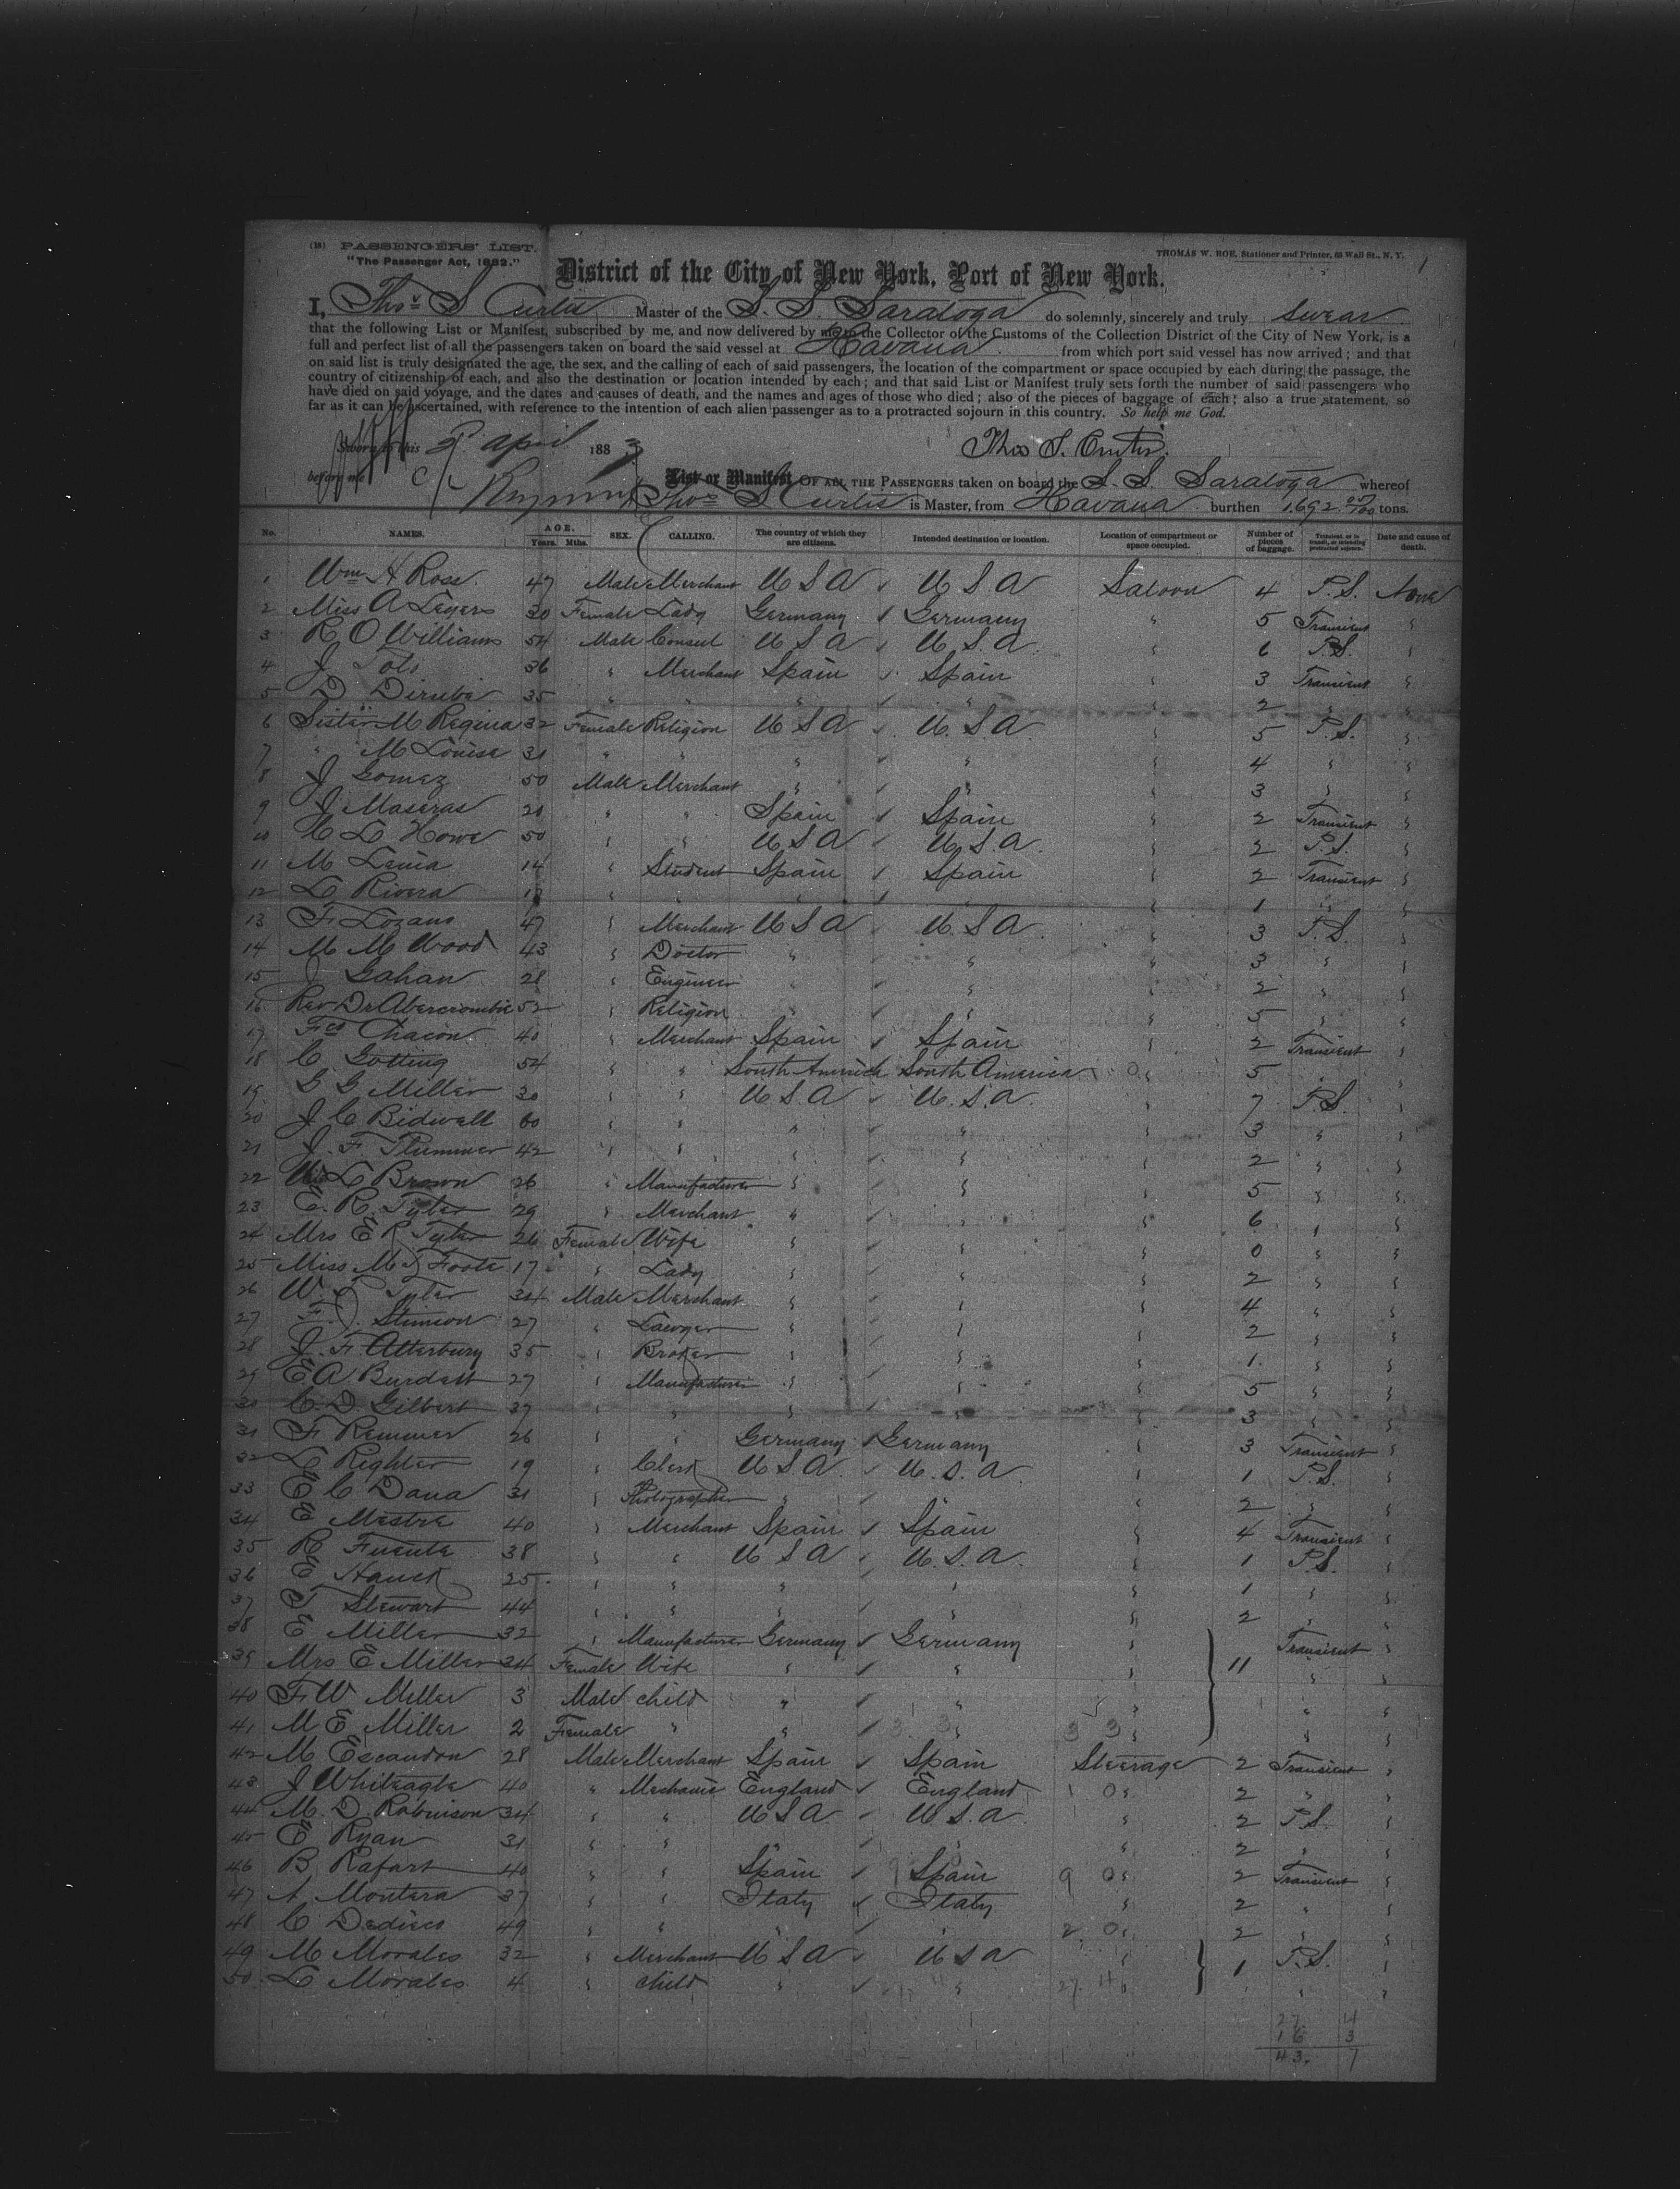 (18) PASSENGERS' LIST.
"The Passenger Act, 1882."
THOMAS W. ROE, Stationer and Printer, 63 Wall St., N. Y.
1
District of the City of New York, Port of New York.
I, Thos S Curtis Master of the S. S. Saratoga do solemnly, sincerely and truly swear
that the following List or Manifest, subscribed by me, and now delivered by me to the Collector of the Customs of the Collection District of the City of New York, is a
full and perfect list of all the passengers taken on board the said vessel at Havana from which port said vessel has now arrived; and that
on said list is truly designated the age, the sex, and the calling of each of said passengers, the location of the compartment or space occupied by each during the passage, the
country of citizenship of each, and also the destination or location intended by each; and that said List or Manifest truly sets forth the number of said passengers who
have died on said voyage, and the dates and causes of death, and the names and ages of those who died; also of the pieces of baggage of each; also a true statement, so
far as it can be ascertained, with reference to the intention of each alien passenger as to a protracted sojourn in this country. So help me God.
Sworn to this April 1883 Thos S. Curtis.
before me
List or Manifest OF ALL THE PASSENGERS taken on board the S. S. Saratoga whereof
Thos S Curtis is Master, from Havana burthen 1692 tons.
No. NAMES. AGE. Years. Mths. SEX. CALLING. The country of which they are citizens. Intended destination or location. Location of compartment or space occupied. Number of pieces of baggage. Transient, or in transit, or intending protracted sojourn. Date and cause of death.
1 Wm H Ross. 47 Male Merchant U S A U S A Saloon 4 P.S. None
2 Miss A Legers 30 Female Lady Germany Germany " 5 Transient "
3 R O Williams 54 Male Consul U S A U.S.A. " 6 P.S. "
4 J 36 " Merchant Spain Spain " 3 Transient "
5 D Dirube 35 " " " " " 2 " "
6 Sister M Regina 32 Female Religion U S A U.S.A. " 5 P.S. "
7 " M Louise 31 " " " " " 4 " "
8 J Gomez 50 Male Merchant " " " 3 " "
9 J Maseras 20 " " Spain Spain " 2 Transient "
10 C L Howe 50 " " U S A U.S.A. " 2 P.S. "
11 M Lenia 14 " Student Spain Spain " 2 Transient "
12 L Rivera " " " " " 1 " "
13 F Lozano 47 " Merchant U S A U.S.A. " 3 P.S. "
14 M M Wood 43 " Doctor " " " 3 " "
15 J Gahan 28 " Engineer " " " 2 " "
16 Rev Dr Abercrombie 52 " Religion " " " 5 " "
17 Fco Chacon 40 " Merchant Spain Spain " 2 Transient "
18 C. Gotting 54 " " South America South America " 5 " "
19 G G Miller 30 " " U S A U.S.A. " 7 P.S. "
20 J C Bidwell 60 " " " " " 3 " "
21 J. F Plummer 42 " " " " " 2 " "
22 L Brown 26 " Manufacturer " " " 5 " "
23 E. R. Tyler 29 " Merchant " " " 6 " "
24 Mrs E R Tyler 26 Female Wife " " " 0 " "
25 Miss M J Foote 17 " Lady " " " 2 " "
26 W Tyler 34 Male Merchant " " " 4 " "
27 F. J. Stimson 27 " Lawyer " " " 2 " "
28 J. F Atterbury 35 " Broker " " " 1 " "
29 E A Burdett 27 " Manufacturer " " " 5 " "
30 C. D. Gilbert 37 " " " " " 3 " "
31 F Remmer 26 " " Germany Germany " 3 Transient "
32 L Righter 19 " Clerk U S A U.S.A " 1 P.S. "
33 E C Dana 31 " Photographer " " " 2 " "
34 E Mestre 40 " Merchant Spain Spain " 4 Transient "
35 R Fuente 38 " " U S A U.S.A. " 1 P.S. "
36 E Hauck 25 " " " " " 1 " "
37 T Stewart 44 " " " " " 2 " "
38 E Miller 32 " Manufacturer Germany Germany " Transient "
39 Mrs E Miller 34 Female Wife " " " 11 " "
40 F W Miller 3 Male child " " " " "
41 M E Miller 2 Female " " " " " "
42 M Escandon 28 Male Merchant Spain Spain Steerage 2 Transient "
43 J Whiteagle 40 " Mechanic England England " 2 " "
44 M. D. Robinson 34 " " U S A U.S.A " 2 P.S. "
45 E Ryan 31 " " " " " 2 " "
46 B Rafart 40 " " Spain Spain " 2 Transient "
47 A Montera 37 " " Italy Italy " 2 " "
48 C Dedieco 49 " " " " " 2 " "
49 M Morales 32 " Merchant U S A U S A " 1 P.S. "
50 L Morales 4 " child " " " " "
27 4
16 3
43 7